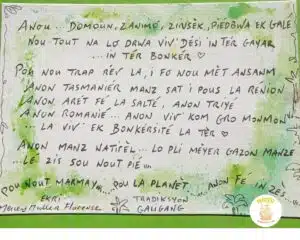 ANOU... DOMOUN, ZANIMO, ZINSEK, PIEDBWA EK GALÉ
NOU TOUT NA LO DRWA VIV' DÉSÍ IN TÈR GAYAR
... IN TER BONKÈR
POU NOU TRAP RÈV LA, I FO NOU MÈT ANSANM
ANON TASMANIÈR MANZ SAT I POUS LA RENION
ANON ARÈT FÉ LA SALTÉ, ANON TRIYÉ
ANON ROMANIÉ... ANON VIV' KOM GRO MONMON
LA VIV' EK BONKÈRSITÉ LA TÈR
ANON MANZ NATIREL.. LO PLI MÉYÈR GAZON MANZÉ
...LÉ ZIS SOU NOUT PIÉ...
POU NOUT MARMAY... POU LA PLANET... ANON FÉ IN ZÈS...
EKRI
Florence
TRADIKSYON
GALIGANG